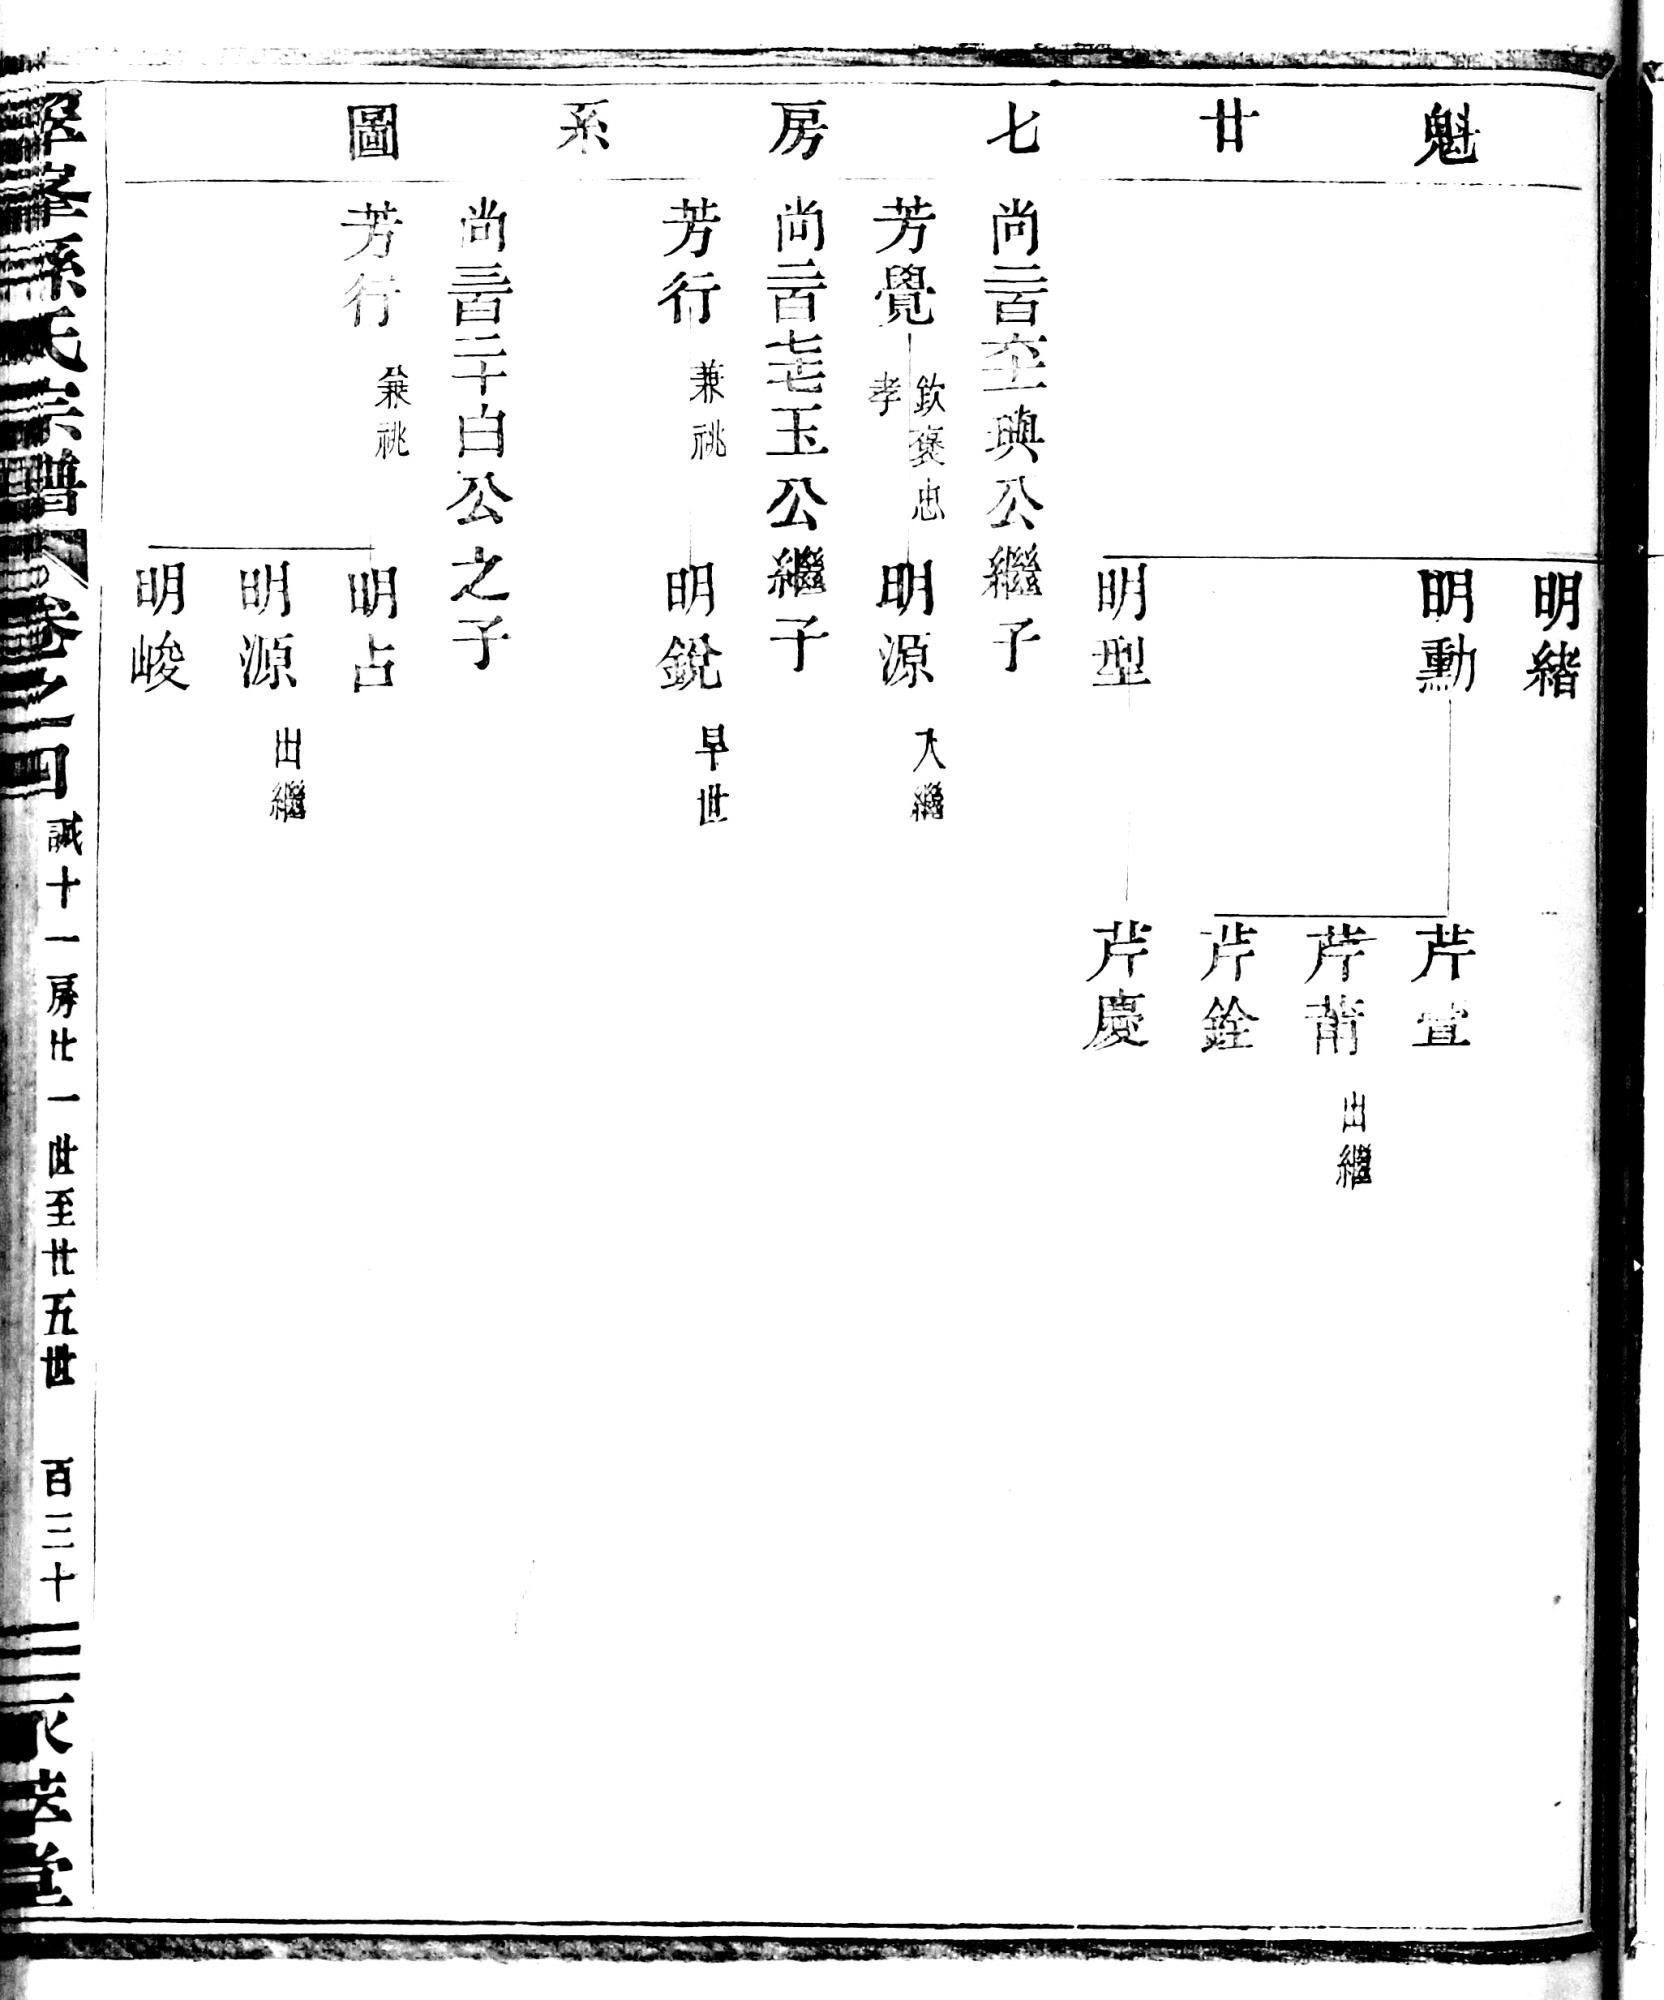 魁廿七房系圖
明緒
明勳
芹萱
芹莆
出繼
芹銓
明型
芹慶
尚二百六十一與公繼子
芳覺
欽褒忠
孝
明源
入繼
尚二百七七玉公繼子
芳行
兼祧
明銳
早世
尚三百二十白公之子
芳行
兼祧
明占
明源
出繼
明峻
峯孫氏宗譜
卷之四
誠十一房廿一世至廿五世
百三十
堂